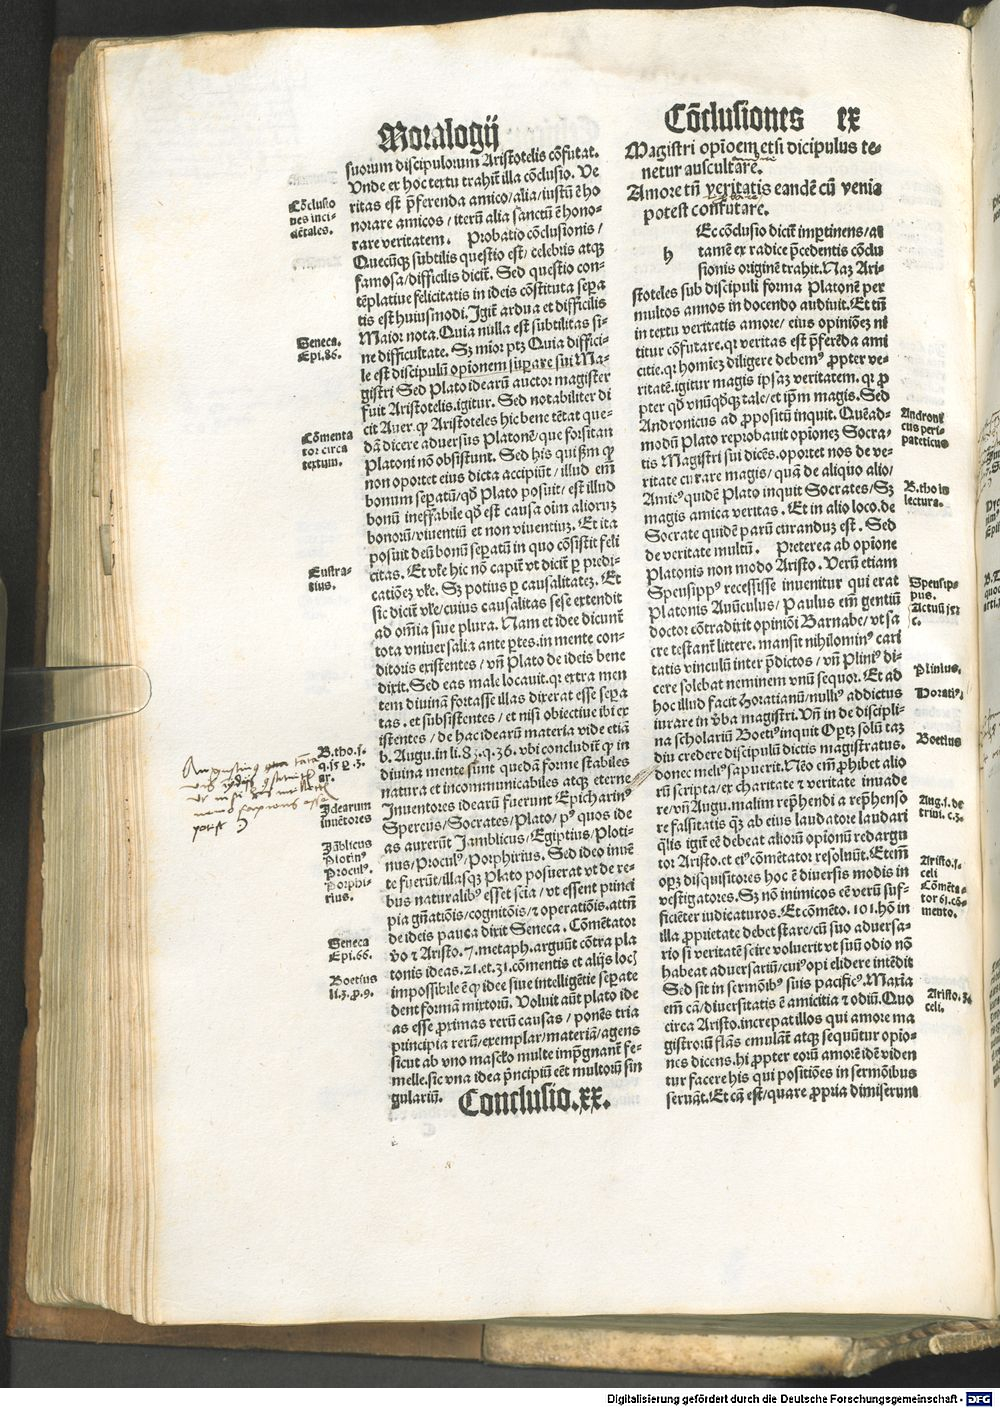 Moralogij
suorum discipulorum Aristotelis cõfutat.
Vnde ex hoc textu trahit̃ illa cõclusio. Ve
ritas est p̃ferenda amico/alia/iustũ ẽ ho
norare amicos / iterũ alia sanctũ ẽ hono-
rare veritatem. Probatio cõclusionis /
Quecũqꝫ subtilis questio est/ celebris atqꝫ
famosa/difficilis dicit̃. Sed questio con-
tẽplatiue felicitatis in ideis cõstituta sepa
tis est huiusmodi. Igit̃ ardua et difficilis
Maior nota. Quia nulla est subtilitas si-
ne difficultate. Sꝫ mior ptꝫ Quia diffici-
le est discipulũ opionem suꝑare sui Ma-
gistri Sed Plato idearũ auctor magister
fuit Aristotelis.igitur. Sed notabiliter di
cit Auer. ꝙ Aristoteles hic bene tẽtat que-
dã dicere aduersus Platonẽ/que forsitan
Platoni nõ obsistunt. Sed his quissm ꝙ
non oportet eius dicta accipiũt / illud em̃
bonum seꝑatũ/qd̃ Plato posuit/ est illud
bonũ ineffabile qd̃ est causa oim alioruz
bonorũ/viuentiũ et non viuentiuz. Et ita
posuit deũ bonũ seꝑatũ in quo cõsistit feli
citas. Et vl̃e hic nõ capit̃ vt dicit̃ ꝑ predi-
catiõez vl̃e. Sꝫ potius ꝑ causalitatez. Et
sic dicit̃ vl̃e/cuius causalitas sese extendit
ad om̃ia siue plura. Nam et idee dicunt̃
tota vniuersalia ante ꝑtes.in mente con-
ditoris existentes / vñ Plato de ideis bene
dixit. Sed eas male locauit.qꝛ extra men
tem diuinã fortasse illas dixerat esse sepa
tas. et subsistentes / et nisi obiectiue ibi ex
istentes / de hac idearũ materia vide etiã
b. Augu.in li.83.q.36. vbi concludit̃ ꝙ in
diuina mente sunt quedam forme stabiles
natura et incommunicabiles atqꝫ eterne
Inuentores idearũ fuerunt Epicharinꝰ
Spercus/Socrates/Plato/ pꝰ quos ide
as auxerũt Jamblicus/Egiptius/Ploti-
nus/Proculꝰ/Porphirius. Sed ideo inuẽ
te fuerũt/illasqꝫ Plato posuerat vt de re-
bus naturalibꝰ esset scia / vt essent princi
pia gñatiõis/cognitiõis/⁊ operatiõis.attñ
de ideis pauca dixit Seneca. Cõmẽtator
ꝟo ⁊ Aristo.7.metaph.arguũt cõtra pla
tonis ideas.21.et.31.cõmentis et alijs locꝭ
impossibile ẽ ꝙ idee siue intelligẽtie seꝑate
dent formã mixtorũ. Voluit aũt plato ide
as esse ꝓrimas rerũ causas / ponẽs tria
principia rerũ/exemplar/materiã/agens
sicut ab vno masclo multe impg̃nant̃ fe-
melle.sic vna idea p̃ncipiũ eẽt multorũ sin
gulariũ. Conclusio.xx.
Cõclusio
nes inci-
dẽtales.
Seneca.
Epi.86.
Cõmenta
tor circa
textum.
Eustra-
tius.
B.tho.s.
q.15 ꝑ .3.
ar.
Idearum
inuẽtores
Jãblicus
Plotinꝰ
Proculꝰ.
Porphi-
rius.
Seneca
Epi.66.
Boetius
li.3.ꝓ.9.
Cõclusiones ex
Magistri opioem etsi dicipulus te-
netur auscultare.
Amore tñ veritatis eandẽ cũ venia
potest confutare.
h Ec cõclusio dicit̃ imꝑtinens/at
tamẽ ex radice p̃cedentis cõclu
sionis originẽ trahit. Naz Ari-
stoteles sub discipuli forma Platonẽ per
multos annos in docendo audiuit. Et tñ
in textu veritatis amore/ eius opiniõez ni
titur cõfutare.qꝛ veritas est p̃ferẽda ami
citie.qꝛ homiez diligere debemꝰ ꝓpter ve-
ritatẽ.igitur magis ipsaz veritatem. qꝛ ꝓ
pter qd̃ vnũqd̃qꝫ tale/ et ip̃m magis. Sed
Andronicus ad ꝓpositũ inquit. Quẽad-
modũ Plato reprobauit opionez Socra-
tis Magistri sui dicẽs.oportet nos de ve-
ritate curare magis / quã de aliquo alio/
Amicꝰ quidẽ Plato inquit Socrates/ Sꝫ
magis amica veritas. Et in alio loco.de
Socrate quidẽ parũ curanduz est. Sed
de veritate multũ. Preterea ab opiõne
Platonis non modo Aristo. Verũ etiam
Speusippꝰ recessisse inuenitur qui erat
Platonis Aũnculus/ Paulus em̃ gentiũ
doctor cõtradixit opiniõi Barnabe/ vt sa
cre testant̃ littere. mansit nihilominꝰ cari
tatis vinculũ inter p̃dictos / vñ Pliniꝰ di-
cere solebat neminem vnũ sequor. Et ad
hoc illud facit Horatianũ/nulliꝰ addictus
iurare in ꝟba magistri. Vñ in de discipli-
na scholariũ Boetiꝰ inquit Oꝑtꝫ solũ taz
diu credere discipulũ dictis magistratus.
donec meliꝰ sapuerit. Nõ em̃ ꝓhibet alio
rũ scripta/ ex charitate ⁊ veritate inuade
re/ vñ Augu.malim rep̃hendi a rep̃henso
re falsitatis qꝫ ab eius laudatore laudari
q̃lis igit̃ eẽ debeat aliorũ opionũ redargu
tor Aristo.et eiꝰ cõmẽtator resoluũt. Etem̃
oꝑꝫ disquisitores hoc ẽ diuersis modis in
vestigatores. Sꝫ nõ inimicos eẽ verũ suf-
ficiẽter iudicaturos. Et cõmẽto. 101. hõ in
illa ꝓprietate debet stare/ cũ suo aduersa-
rio si veritatẽ scire voluerit vt suũ odio nõ
habeat aduersariũ/ cuiꝰ opi elidere intẽdit
Sed sit in sermõibꝰ suis pacificꝰ. Maxia
em̃ cã/ diuersitatis ẽ amicitia ⁊ odiũ. Quo
circa Aristo.increpat illos qui amore ma
gistrorũ suos emulãt̃ atqꝫ sequũtur opio-
nes dicens.hi ꝓpter eorũ amorẽ idẽ viden
tur facere his qui positiões in sermõibus
seruãt. Et cã est/quare ꝓpria dimiserunt
Androni
cus peri-
pateticus
B.tho in
lectura.
Speusip-
pus.
Actuũ 15
c.
Plinius.
Horatiꝰ
Boetius
Aug.1.de
trini.c.3.
Aristo.1.
celi
Cõmẽta-
tor 61.cõ-
mento.
Aristo.3.
celi.
Digitalisierung gefördert durch die Deutsche Forschungsgemeinschaft - DFG